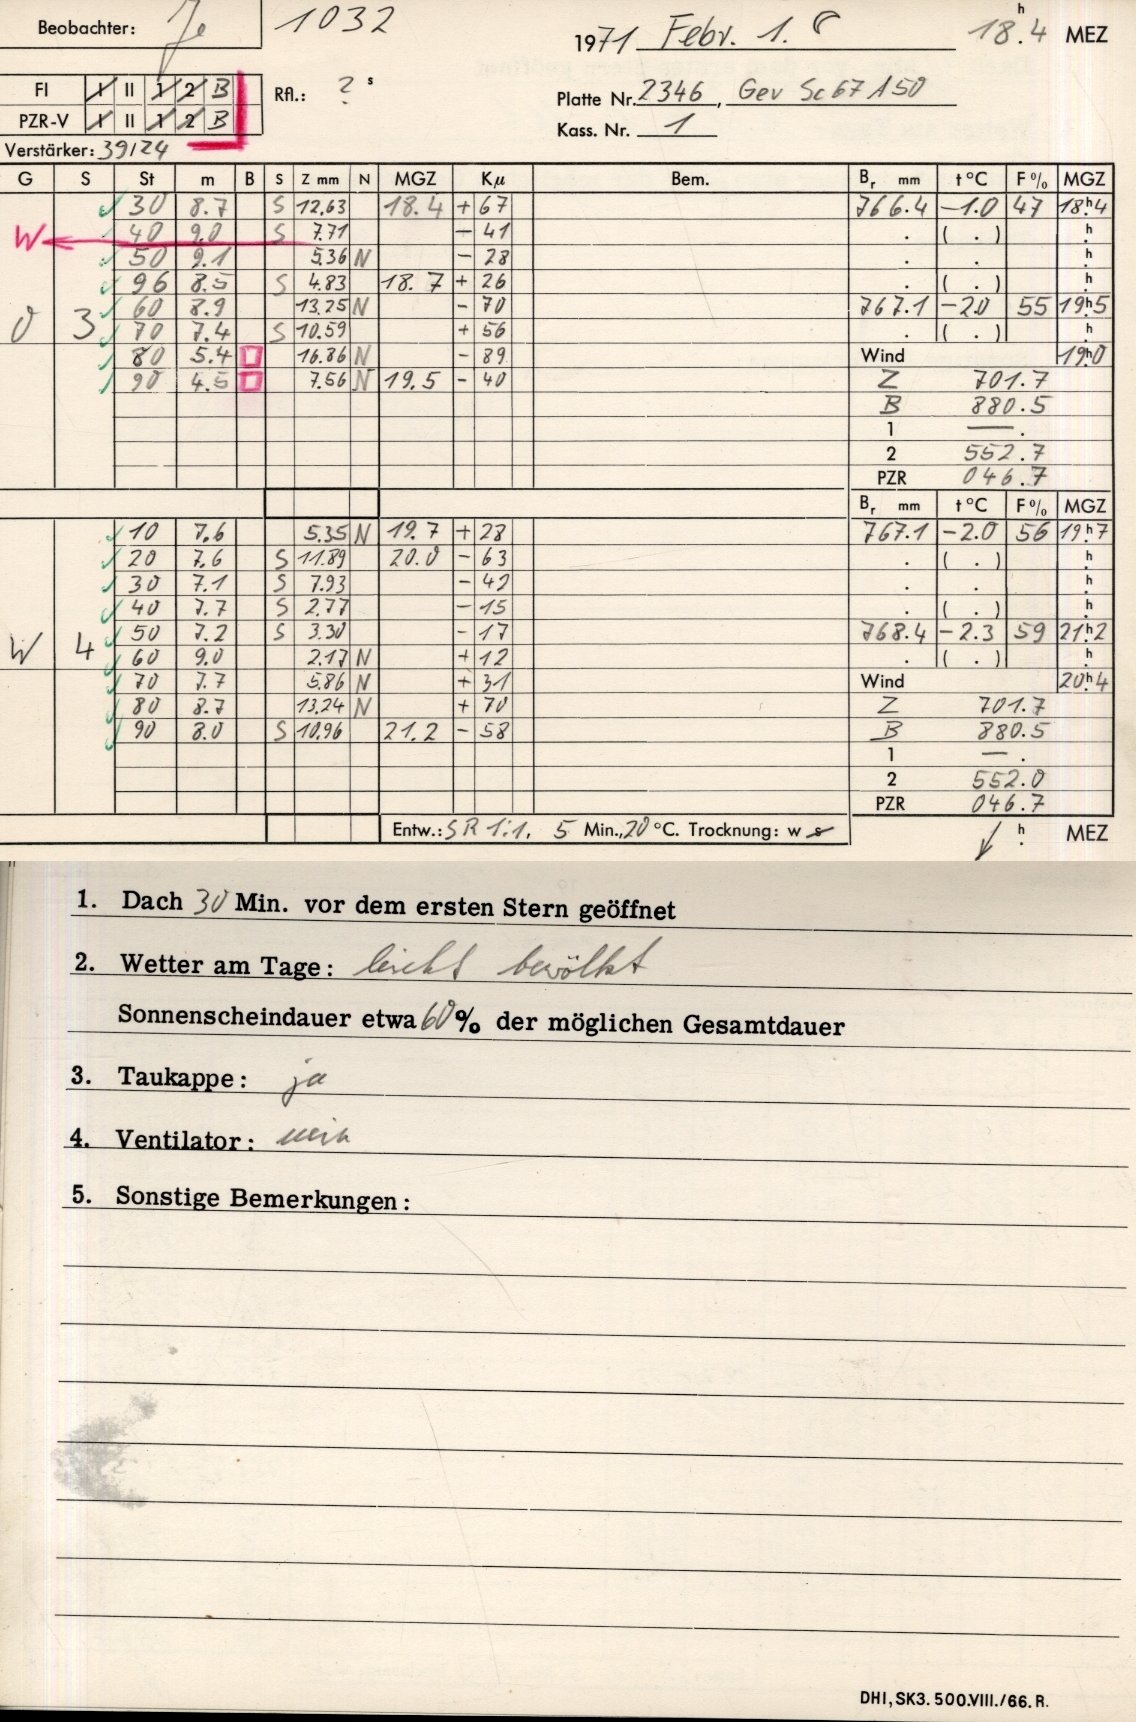 Beobachter: Je 1032 1971 Febr. 1. 18h.4 MEZ
FI I II 1 2 B Rfl.: ? s Platte Nr. 2346, Gev Sc67A50
PZR-V I II 1 2 B Kass. Nr. 1
Verstärker: 39/24
G S St m B S Z mm N MGZ Kµ Bem. Br mm t °C F % MGZ
30 8.7 S 12.63 18.4 + 67 766.4 -1.0 47 18h4
W 40 9.0 S 7.71 - 41 . ( . ) h.
50 9.1 5.36 N - 28 . . h.
96 8.5 S 4.83 18.7 + 26 . ( . ) h.
60 8.9 13.25 N - 70 767.1 -2.0 55 19h5
O 3 70 7.4 S 10.59 + 56 . ( . ) h.
80 5.4 16.86 N - 89 Wind 19h0
90 4.5 7.56 N 19.5 - 40 Z 701.7
B 880.5
1 — .
2 552.7
PZR 046.7
Br mm t °C F % MGZ
10 7.6 5.35 N 19.7 + 28 767.1 -2.0 56 19h7
20 7.6 S 11.89 20.0 - 63 . ( . ) h.
30 7.1 S 7.93 - 42 . . h.
40 7.7 S 2.77 - 15 . ( . ) h.
50 7.2 S 3.30 - 17 768.4 -2.3 59 21h2
W 4 60 9.0 2.17 N + 12 . ( . ) h.
70 7.7 5.86 N + 31 Wind 20h4
80 8.7 13.24 N + 70 Z 701.7
90 8.0 S 10.96 21.2 - 58 B 880.5
1 — .
2 552.0
PZR 046.7
Entw.: SR 1:1, 5 Min., 20 °C. Trocknung: w s h. MEZ
1. Dach 30 Min. vor dem ersten Stern geöffnet
2. Wetter am Tage: leicht bewölkt
Sonnenscheindauer etwa 60 % der möglichen Gesamtdauer
3. Taukappe: ja
4. Ventilator: nein
5. Sonstige Bemerkungen:
DHI, SK3. 500.VIII./66. R.